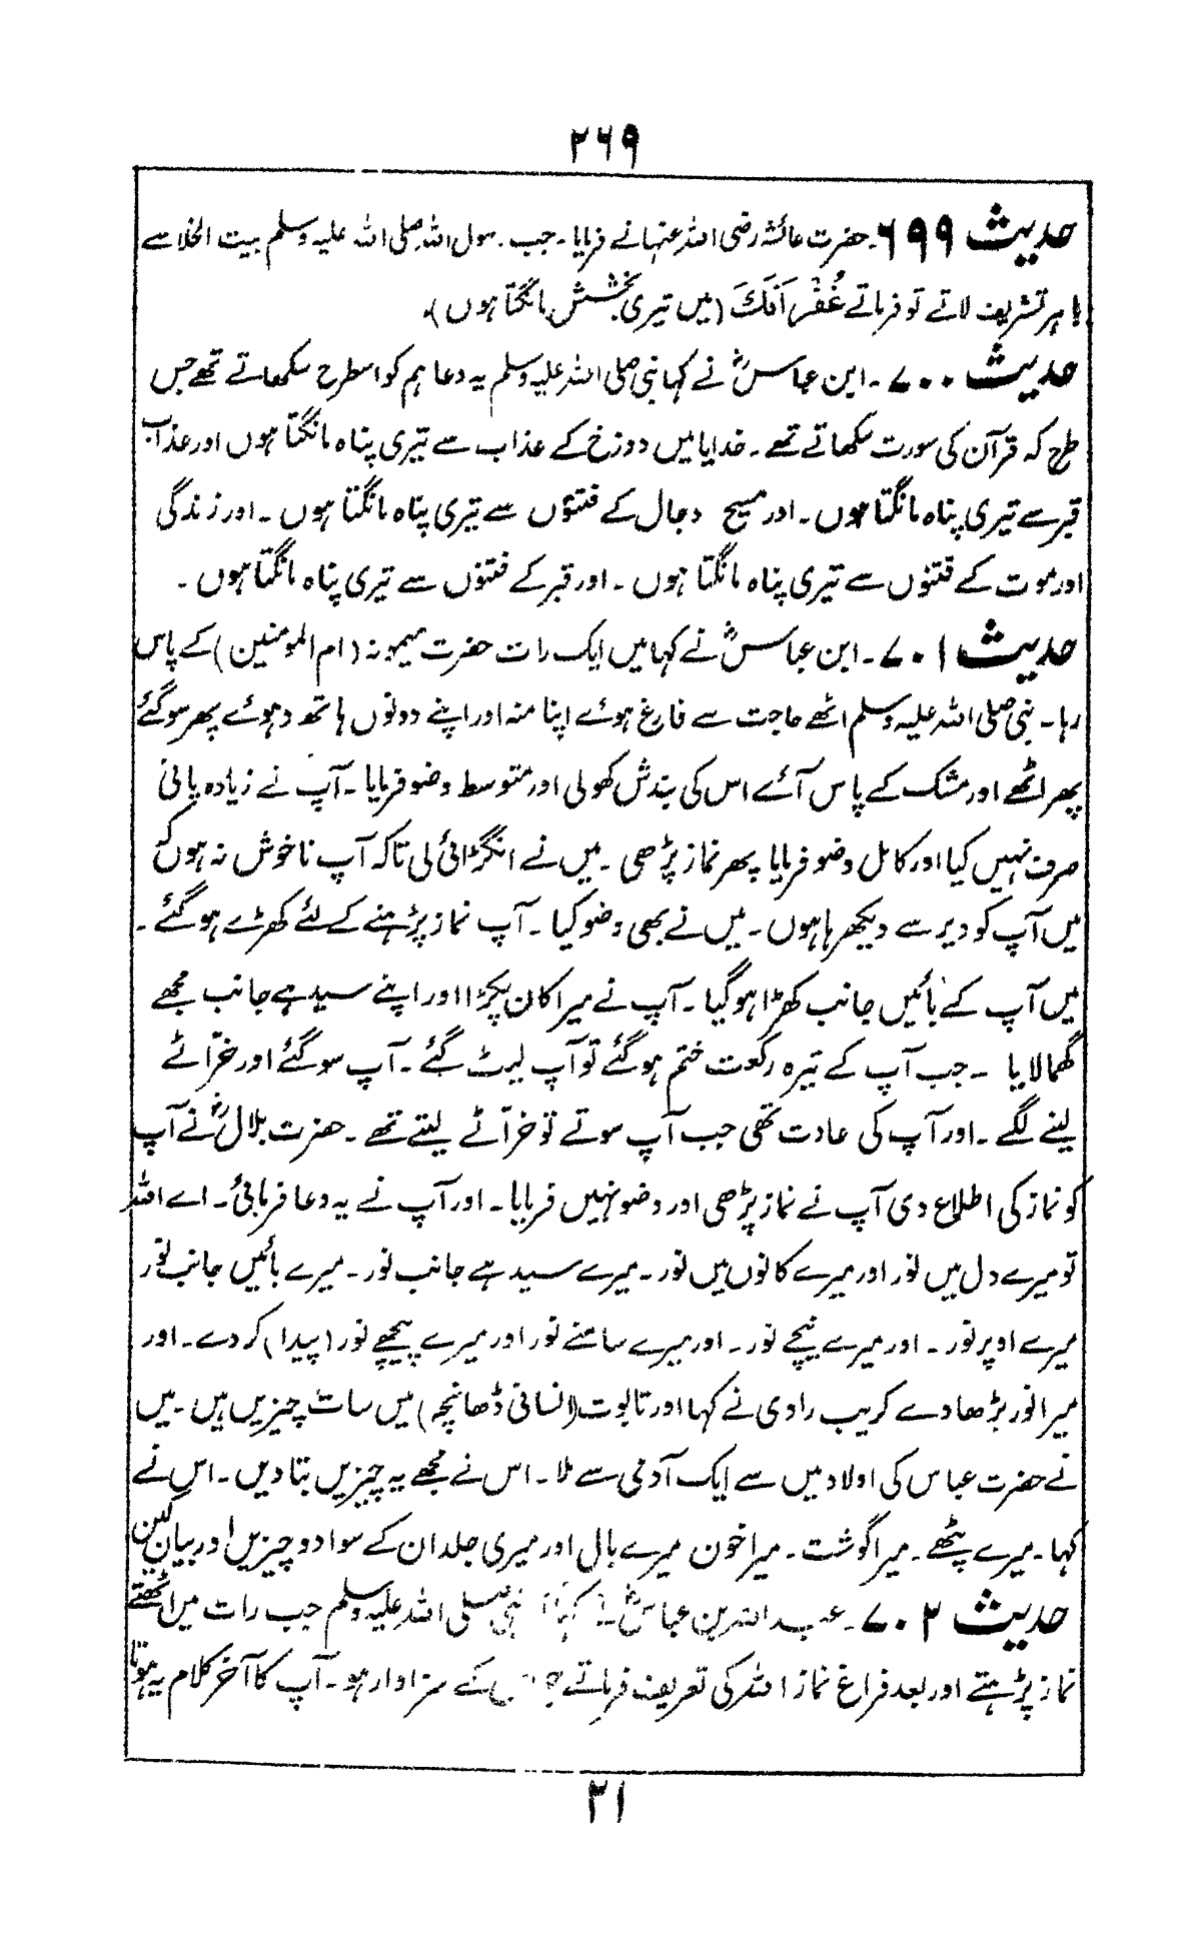 ۲۶۹
حدیث ۶۹۹۔ حضرت عائشہ رضی اللہ عنہا نے فرمایا۔ جب رسول اللہ صلی اللہ علیہ وسلم بیت الخلا سے
باہر تشریف لاتے تو فرماتے غُفْرَانَکَ (میں تیری بخشش مانگتا ہوں)۔
حدیث ۷۰۰۔ ابن عباسؓ نے کہا نبی صلی اللہ علیہ وسلم یہ دعا ہم کو اسطرح سکھاتے تھے جس
طرح کہ قرآن کی سورت سکھاتے تھے۔ خدایا میں دوزخ کے عذاب سے تیری پناہ مانگتا ہوں اور عذاب
قبر سے تیری پناہ مانگتا ہوں۔ اور مسیح دجال کے فتنوں سے تیری پناہ مانگتا ہوں۔ اور زندگی
اور موت کے فتنوں سے تیری پناہ مانگتا ہوں۔ اور قبر کے فتنوں سے تیری پناہ مانگتا ہوں۔
حدیث ۷۰۱۔ ابن عباسؓ نے کہا میں ایک رات حضرت میمونہ (ام المومنین) کے پاس
رہا۔ نبی صلی اللہ علیہ وسلم اٹھے حاجت سے فارغ ہوئے اپنا منہ اور اپنے دونوں ہاتھ دہوئے پھر سو گئے
پھر اٹھے اور مشک کے پاس آئے اس کی بندش کھولی اور متوسط وضو فرمایا۔ آپ نے زیادہ پانی
صرف نہیں کیا اور کامل وضو فرمایا پھر نماز پڑھی۔ میں نے انگڑائی لی تاکہ آپ ناخوش نہ ہوں کہ
میں آپ کو دیر سے دیکھ رہا ہوں۔ میں نے بھی وضو کیا۔ آپ نماز پڑہنے کے لئے کھڑے ہو گئے۔
میں آپ کے بائیں جانب کھڑا ہو گیا۔ آپ نے میرا کان پکڑا اور اپنے سیدہے جانب مجھے
گھما لایا ۔ جب آپ کے تیرہ رکعت ختم ہو گئے تو آپ لیٹ گئے۔ آپ سو گئے اور خرّاٹے
لینے لگے۔ اور آپ کی عادت تھی جب آپ سوتے تو خرّاٹے لیتے تھے۔ حضرت بلالؓ نے آپ
کو نماز کی اطلاع دی آپ نے نماز پڑھی اور وضو نہیں فرمایا۔ اور آپ نے یہ دعا فرمائی۔ اے اللہ
تو میرے دل میں نور اور میرے کانوں میں نور۔ میرے سیدہے جانب نور۔ میرے بائیں جانب نور
میرے اوپر نور۔ اور میرے نیچے نور۔ اور میرے سامنے نور اور میرے پیچھے نور (پیدا) کر دے۔ اور
میرا نور بڑھا دے کریب راوی نے کہا اور تابوت (انسانی ڈھانچہ) میں سات چیزیں ہیں۔ میں
نے حضرت عباس کی اولاد میں سے ایک آدمی سے ملا۔ اس نے مجھے یہ چیزیں بتا دیں۔ اس نے
کہا۔ میرے پٹھے۔ میرا گوشت۔ میرا خون میرے بال اور میری جلد ان کے سوا دو چیزیں اور بیان کیں
حدیث ۷۰۲۔ عبد اللہ بن عباسؓ نے کہا نبی صلی اللہ علیہ وسلم جب رات میں اٹھتے
نماز پڑہتے اور بعد فراغ نماز اللہ کی تعریف فرماتے کے سزاوار ہو۔ آپ کا آخر کلام یہ ہوتا
۲۱